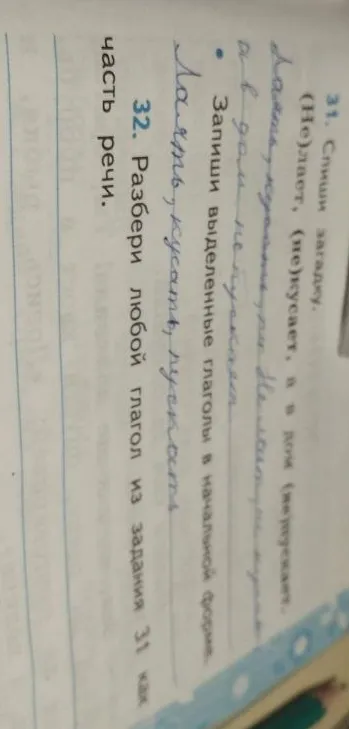 31. Спиши загадку.
(Не)лает, (не)кусает, а в дом (не)пускает.
Лаять, кусать,
а в дом не пускает
• Запиши выделенные глаголы в начальной форме.
Лаять, кусать, пускать
32. Разбери любой глагол из задания 31 как
часть речи.